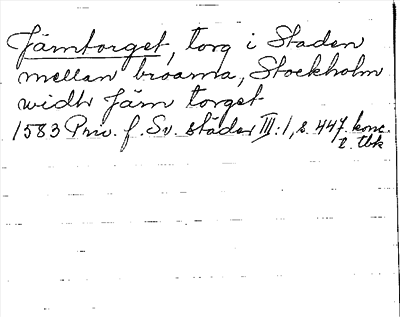 Järntorget, torg i Staden
mellan broarna, Stockholm
widh Järn torget
1583 Priv. f. Sv. städer III:1, s. 447. konc.
t. tbk